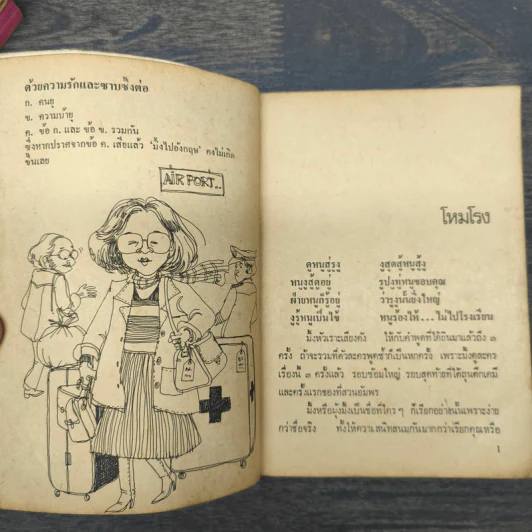 ด้วยความรักและซาบซึ้งต่อ
ก. คนยุ
ข. ความบ้ายุ
ค. ข้อ ก. และ ข้อ ข. รวมกัน
ซึ่งหากปราศจากข้อ ค. เสียแล้ว 'มั้งไปอังกฤษ' คงไม่เกิด
ขึ้นเลย
AIR PORT..
โหมโรง
ดูหนูสู่รูงู งูสุดสู้หนูสู้งู
หนูงูสู้ดูอยู่ รูปงูทู่หนูขอบคุณ
ฝ่ายหนูก็รู้อยู่ ว่ารูงูนั้นยิ่งใหญ่
งูรู้หนูเป็นไข้ หนูร้องไห้...ไม่ไปโรงเรียน
มั้งหัวเราะเสียงดัง ให้กับคำพูดที่ได้ยินมาแล้วถึง ๓
ครั้ง ถ้าจะรวมที่ตัวละครพูดซ้ำก็เป็นหกครั้ง เพราะมั้งดูละคร
เรื่องนี้ ๓ ครั้งแล้ว รอบซ้อมใหญ่ รอบสุดท้ายที่ได้ยินศึกเคมี
และครั้งแรกของที่สวนอัมพร
มั้งหรือมุ้งมิ้งเป็นชื่อที่ใคร ๆ ก็เรียกอย่างนั้นเพราะง่าย
กว่าชื่อจริง ทั้งให้ความสนิทสนมกันมากกว่าเรียกคุณหรือ
1